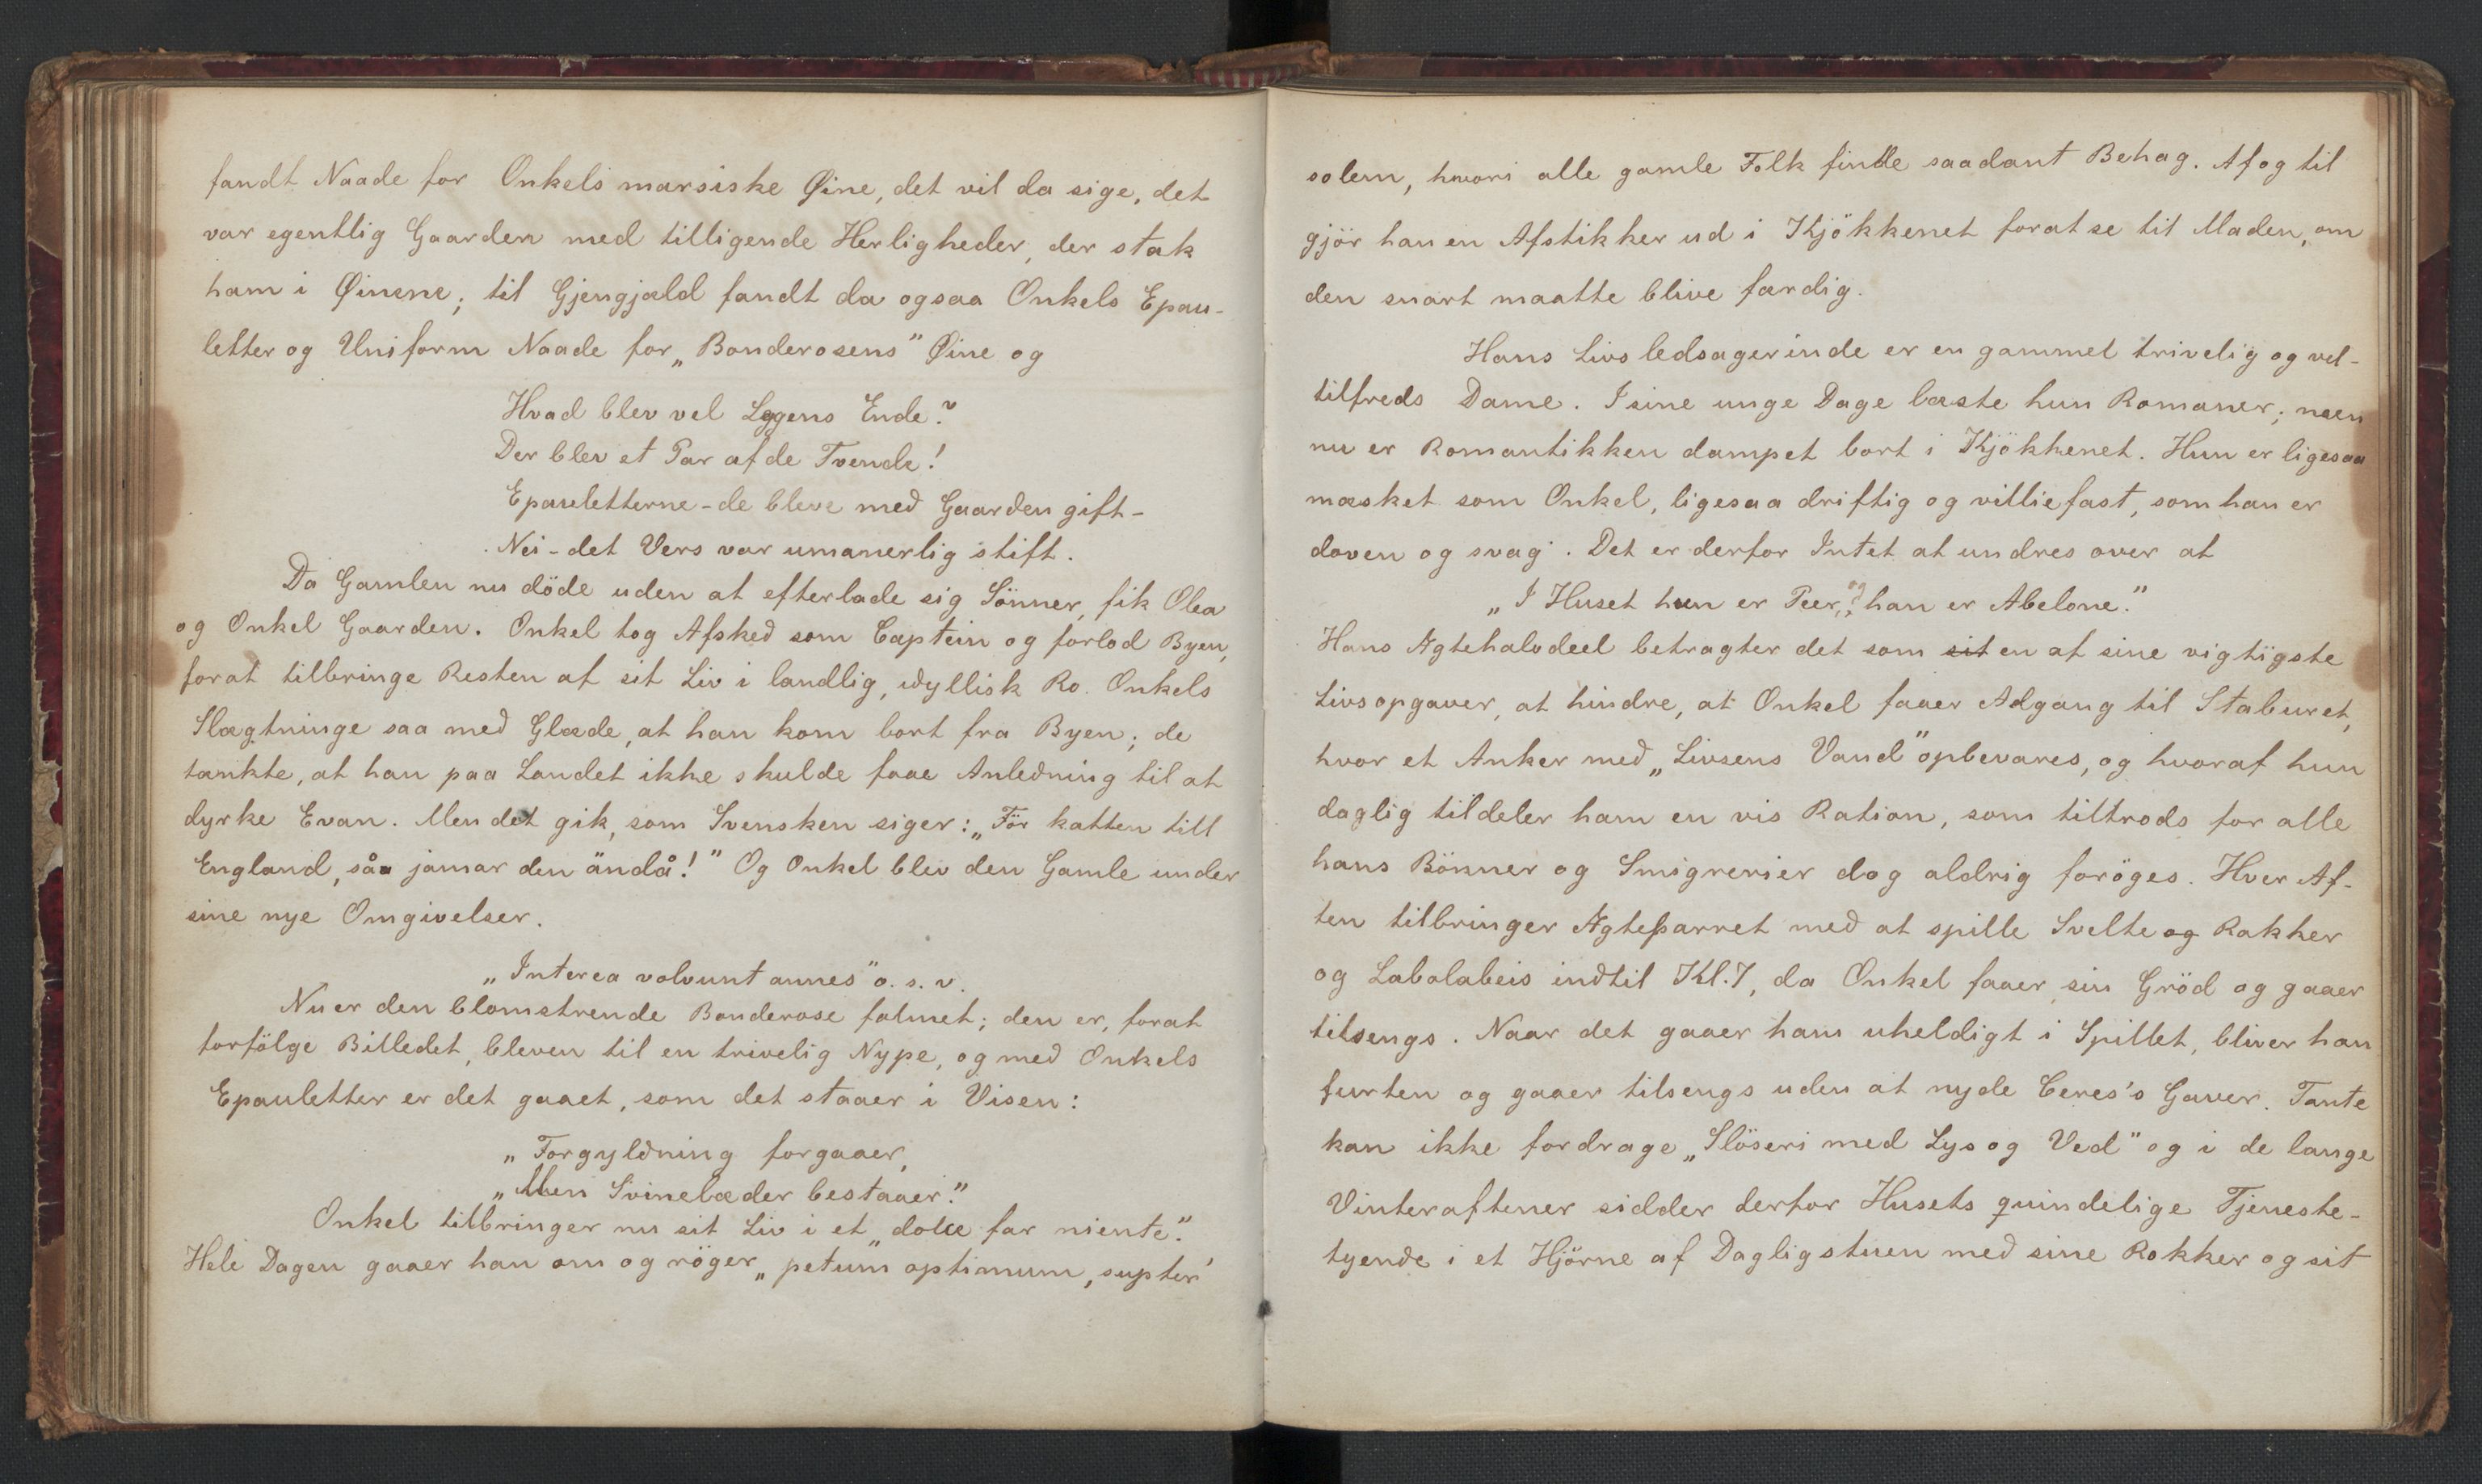 fandt Naade for Onkels marsiske Øine, det vil da sige, det
var egentlig Gaarden med tilligende Herligheder, der stak
ham i Øinene; til Gjengjæld fandt da ogsaa Onkels Epau-
letter og Uniform Naade for „Bonderosens" Øine og
Hvad blev vel Legens Ende?
Der blev et Par af de Tvende!
Epauletterne - de bleve med Gaarden gift -
Nei - det Vers var umanerlig stift.
Da Gamlen nu döde uden at efterlade sig Sönner, fik Olea
og Onkel Gaarden. Onkel tog Afsked som Captein og forlod Byen,
forat tilbringe Resten af sit Liv i landlig, idyllisk Ro. Onkels
Slægtninge saa med Glæde, at han kom bort fra Byen; de
tænkte, at han paa Landet ikke skulde faae Anledning til at
dyrke Evan. Men det gik, som Svensken siger: „För katten till
England, så jamar den ändå!" Og Onkel blev den Gamle under
sine nye Omgivelser.
„Interea volvunt annes" o. s. v.
Nu er den blomstrende Bonderose falmet; den er, forat
forfölge Billedet, bleven til en trivelig Nype, og med Onkels
Epauletter er det gaaet, som det staaer i Visen:
„Forgyldning forgaaer,
„Men Svinelæder bestaaer."
Onkel tilbringer nu sit Liv i et „dolce far niente".
Hele Dagen gaaer han om og röger „petum optimum, supter
solem, hvori alle gamle Folk finde saadant Behag. Af og til
gjör han en Afstikker ud i Kjökkenet forat se til Maden, om
den snart maatte blive færdig.
Hans Livsledsagerinde er en gammel trivelig og vel-
tilfreds Dame. I sine unge Dage læste hun Romaner; men
nu er Romantikken dampet bort i Kjökkenet. Hun er ligesaa
mæsket som Onkel, ligesaa driftig og villiefast, som han er
doven og svag. Det er derfor Intet at undres over at
„I Huset hun er Peer, og han er Abelone."
Hans Ægtehalvdeel betragter det som sit en af sine vigtigste
Livsopgaver, at hindre, at Onkel faaer Adgang til Staburet,
hvor et Anker med „Livsens Vand" opbevares, og hvoraf hun
daglig tildeler ham en vis Ration, som tiltrods for alle
hans Bönner og Smigrerier dog aldrig foröges. Hver Af-
ten tilbringer Ægteparret med at spille Svelte og Rakker
og Labolabeis indtil Kl. 7, da Onkel faaer sin Gröd og gaaer
tilsengs. Naar det gaaer ham uheldigt i Spillet, bliver han
furten og gaaer tilsengs uden at nyde Ceres's Gaver. Tante
kan ikke fordrage „Slöseri med Lys og Ved" og i de lange
Vinteraftener sidder derfor Husets quindelige Tjeneste-
tyende i et Hjörne af Dagligstuen med sine Rokker og sit